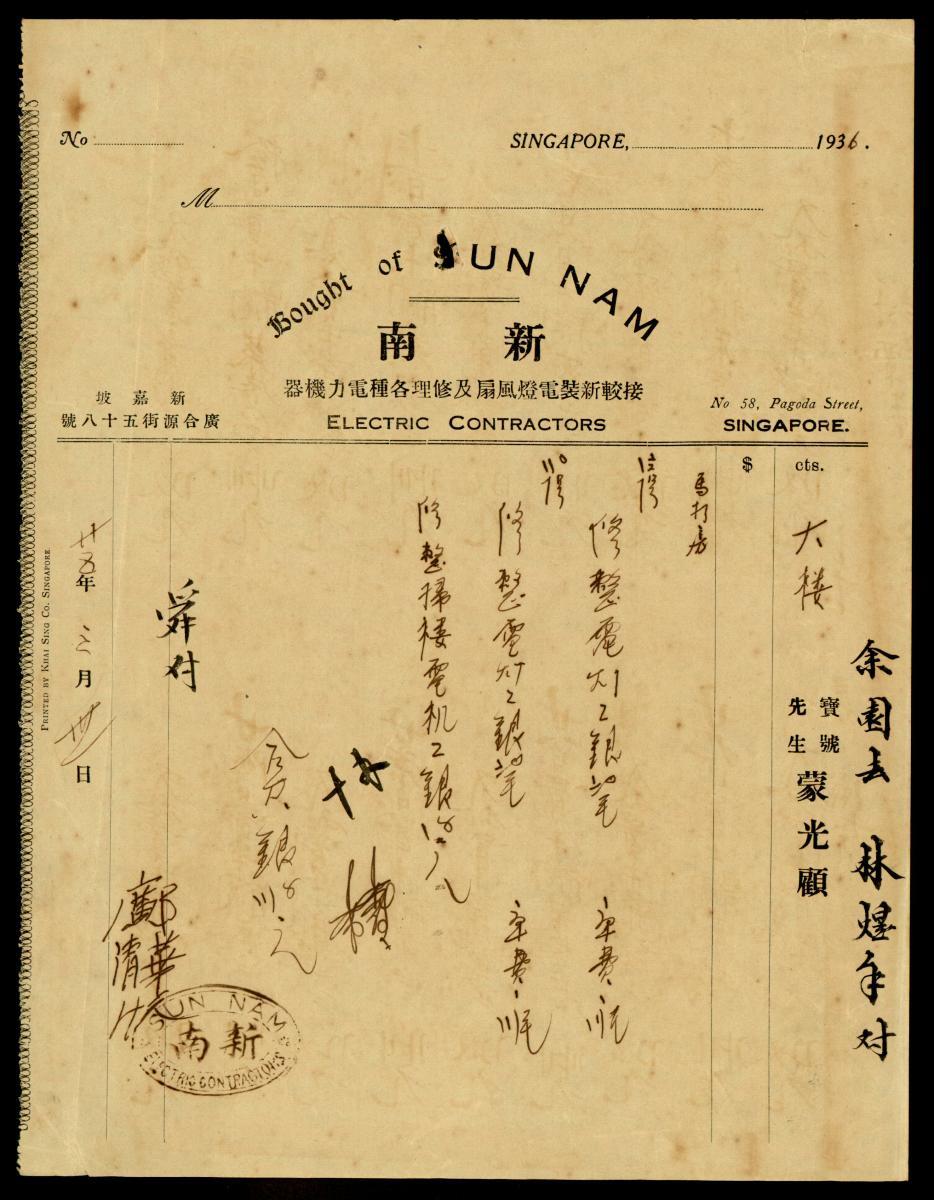 No
SINGAPORE, 1936.
M
Bought of SUN NAM
新南
接較新裝電燈風扇及修理各種電力機器
ELECTRIC CONTRACTORS
新嘉坡
廣合源街五十八號
No 58, Pagoda Street,
SINGAPORE.
$ cts.
余園去 林煜年对
大楼
寶號
先生
蒙光顧
馬打房
修整電灯工銀 車費
修整電灯工銀 車費
修整掃楼電机工銀
合共銀
舜对
廿五年三月卅日
鄺清華
SUN NAM
新南
ELECTRIC CONTRACTORS
PRINTED BY KHAI SING CO. SINGAPORE